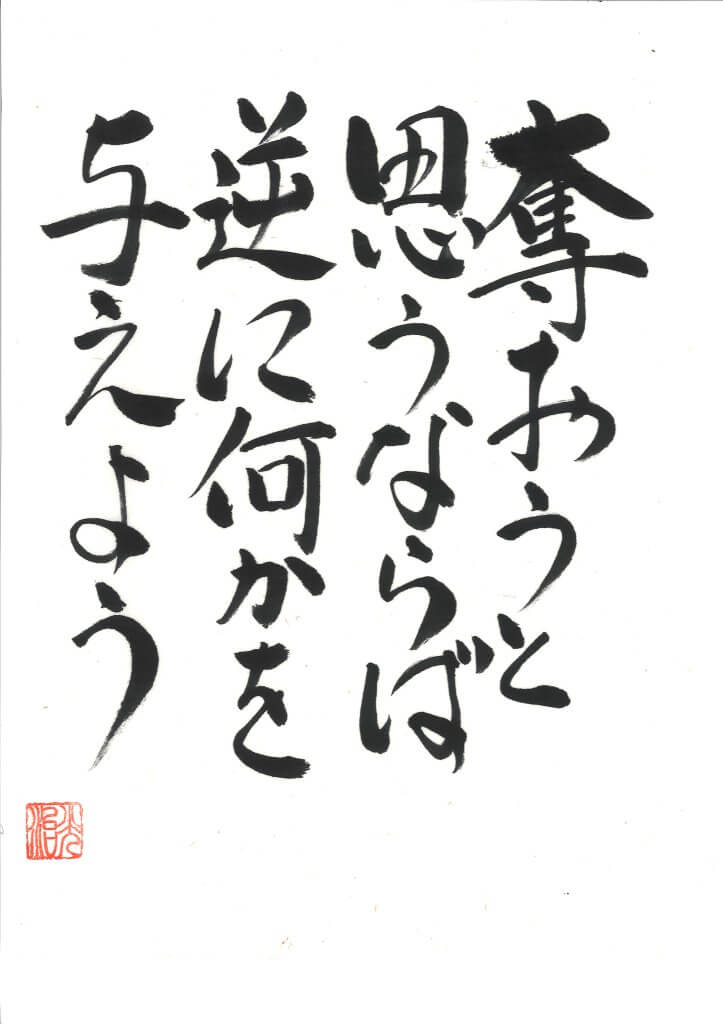 奪おうと
思うならば
逆に何かを
与えよう